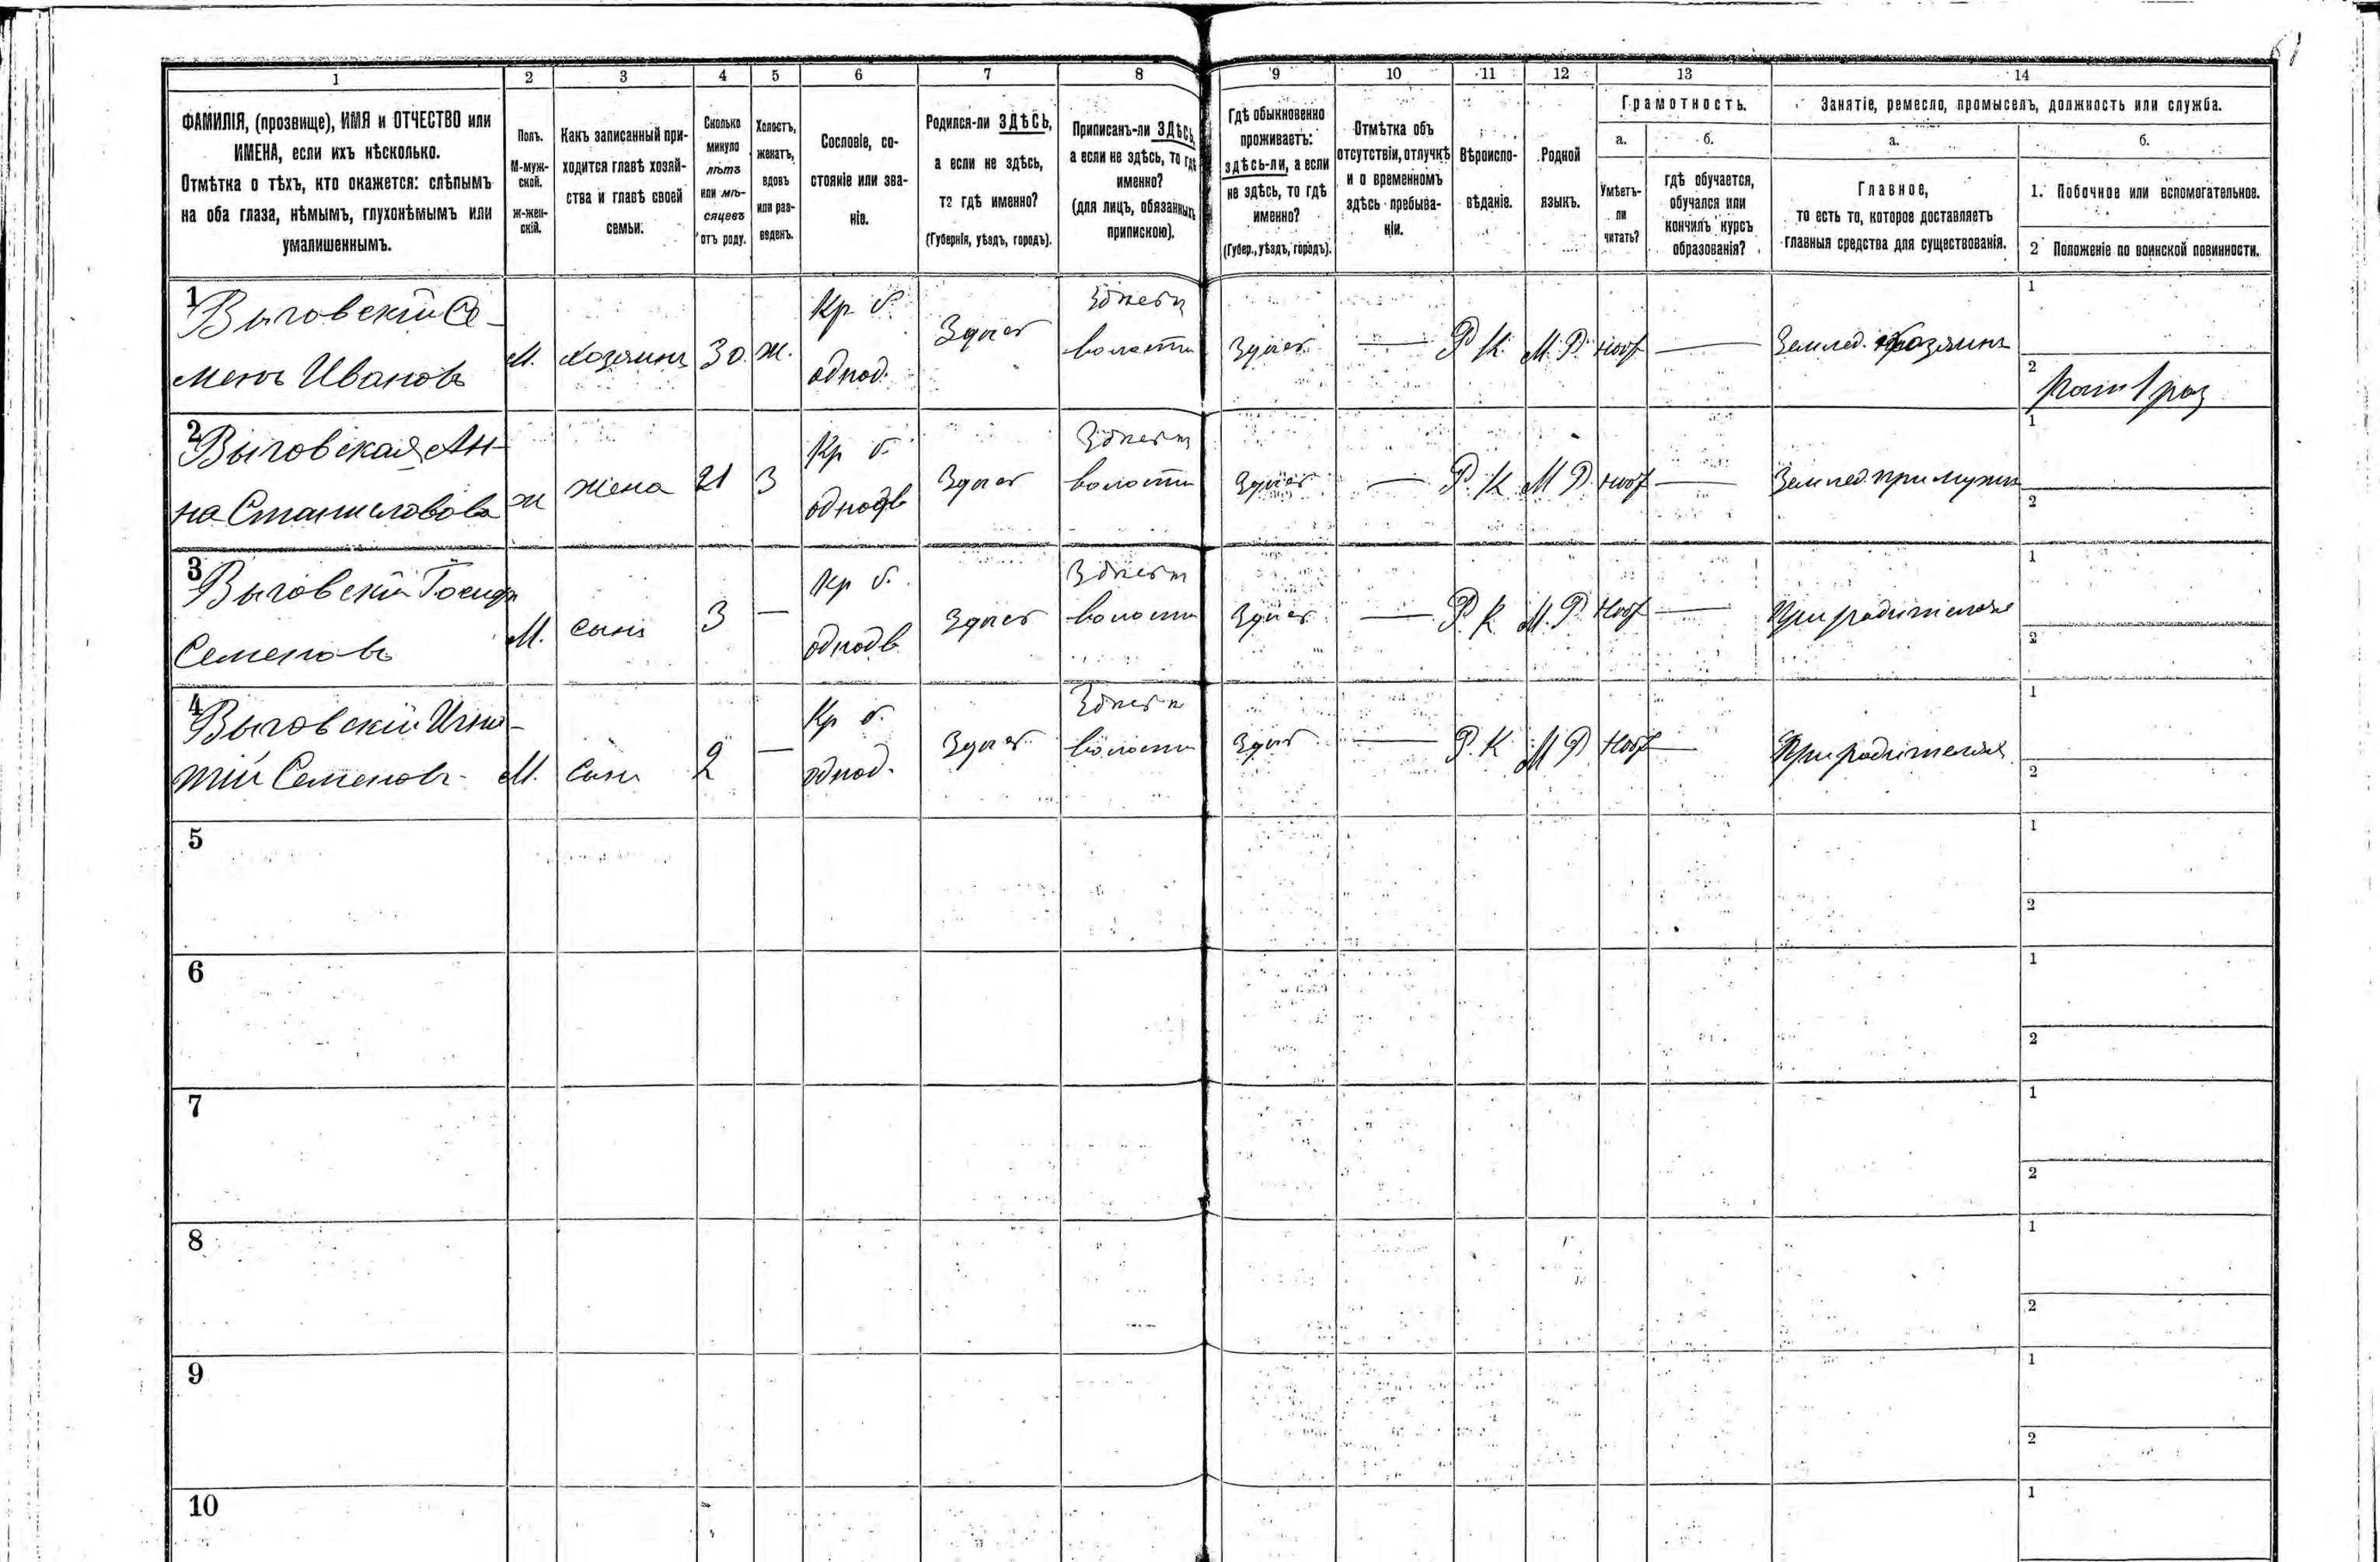 61
1 2 3 4 5 6 7 8 9 10 11 12 13 14
ФАМИЛІЯ, (прозвище), ИМЯ и ОТЧЕСТВО или
ИМЕНА, если ихъ нѣсколько.
Отмѣтка о тѣхъ, кто окажется: слѣпымъ
на оба глаза, нѣмымъ, глухонѣмымъ или
умалишеннымъ.
Полъ.
М-муж-
ской.
Ж-жен-
скій.
Какъ записанный при-
ходится главѣ хозяй-
ства и главѣ своей
семьи.
Сколько
минуло
лѣтъ
или мѣ-
сяцевъ
отъ роду.
Холостъ,
женатъ,
вдовъ
или раз-
веденъ.
Сословіе, со-
стояніе или зва-
ніе.
Родился-ли ЗДѢСЬ,
а если не здѣсь,
то гдѣ именно?
(Губернія, уѣздъ, городъ).
Приписанъ-ли ЗДѢСЬ,
а если не здѣсь, то гдѣ
именно?
(для лицъ, обязанныхъ
припискою).
Гдѣ обыкновенно
проживаетъ:
здѣсь-ли, а если
не здѣсь, то гдѣ
именно?
(Губер., уѣздъ, городъ).
Отмѣтка объ
отсутствіи, отлучкѣ
и о временномъ
здѣсь пребыва-
ніи.
Вѣроиспо-
вѣданіе.
Родной
языкъ.
Грамотность.
а.
Умѣетъ-
ли
читать?
б.
гдѣ обучается,
обучался или
кончилъ курсъ
образованія?
Занятіе, ремесло, промыселъ, должность или служба.
а.
Главное,
то есть то, которое доставляетъ
главныя средства для существованія.
б.
1. Побочное или вспомогательное.
2 Положеніе по воинской повинности.
1
Выговскій Се-
менъ Ивановъ
М.
хозяинъ
30.
ж.
Кр б.
однод.
Здѣсь
Здѣсь
волости
Здѣсь
—
Р К.
М. Р.
—
Землед. хозяинъ
1
2
2
Выговская Ан-
на Станиславова
ж
жена
21
З
Кр б.
однодв
Здѣсь
волости
Здѣсь
—
Р. К
М Р
—
Землед. при мужѣ
1
2
3
Выговскій Іосифъ
Семеновъ
М.
сынъ
3
—
Кр б.
однодв
Здѣсь
волости
Здѣсь
—
Р. К
М. Р
—
При родителяхъ
1
2
4
Выговскій Игна-
тій Семеновъ
М.
Сынъ
2
—
Кр б.
однод.
Здѣсь
волости
Здѣсь
—
Р. К
М Р
—
При родителяхъ
1
2
5
1
2
6
1
2
7
1
2
8
1
2
9
1
2
10
1